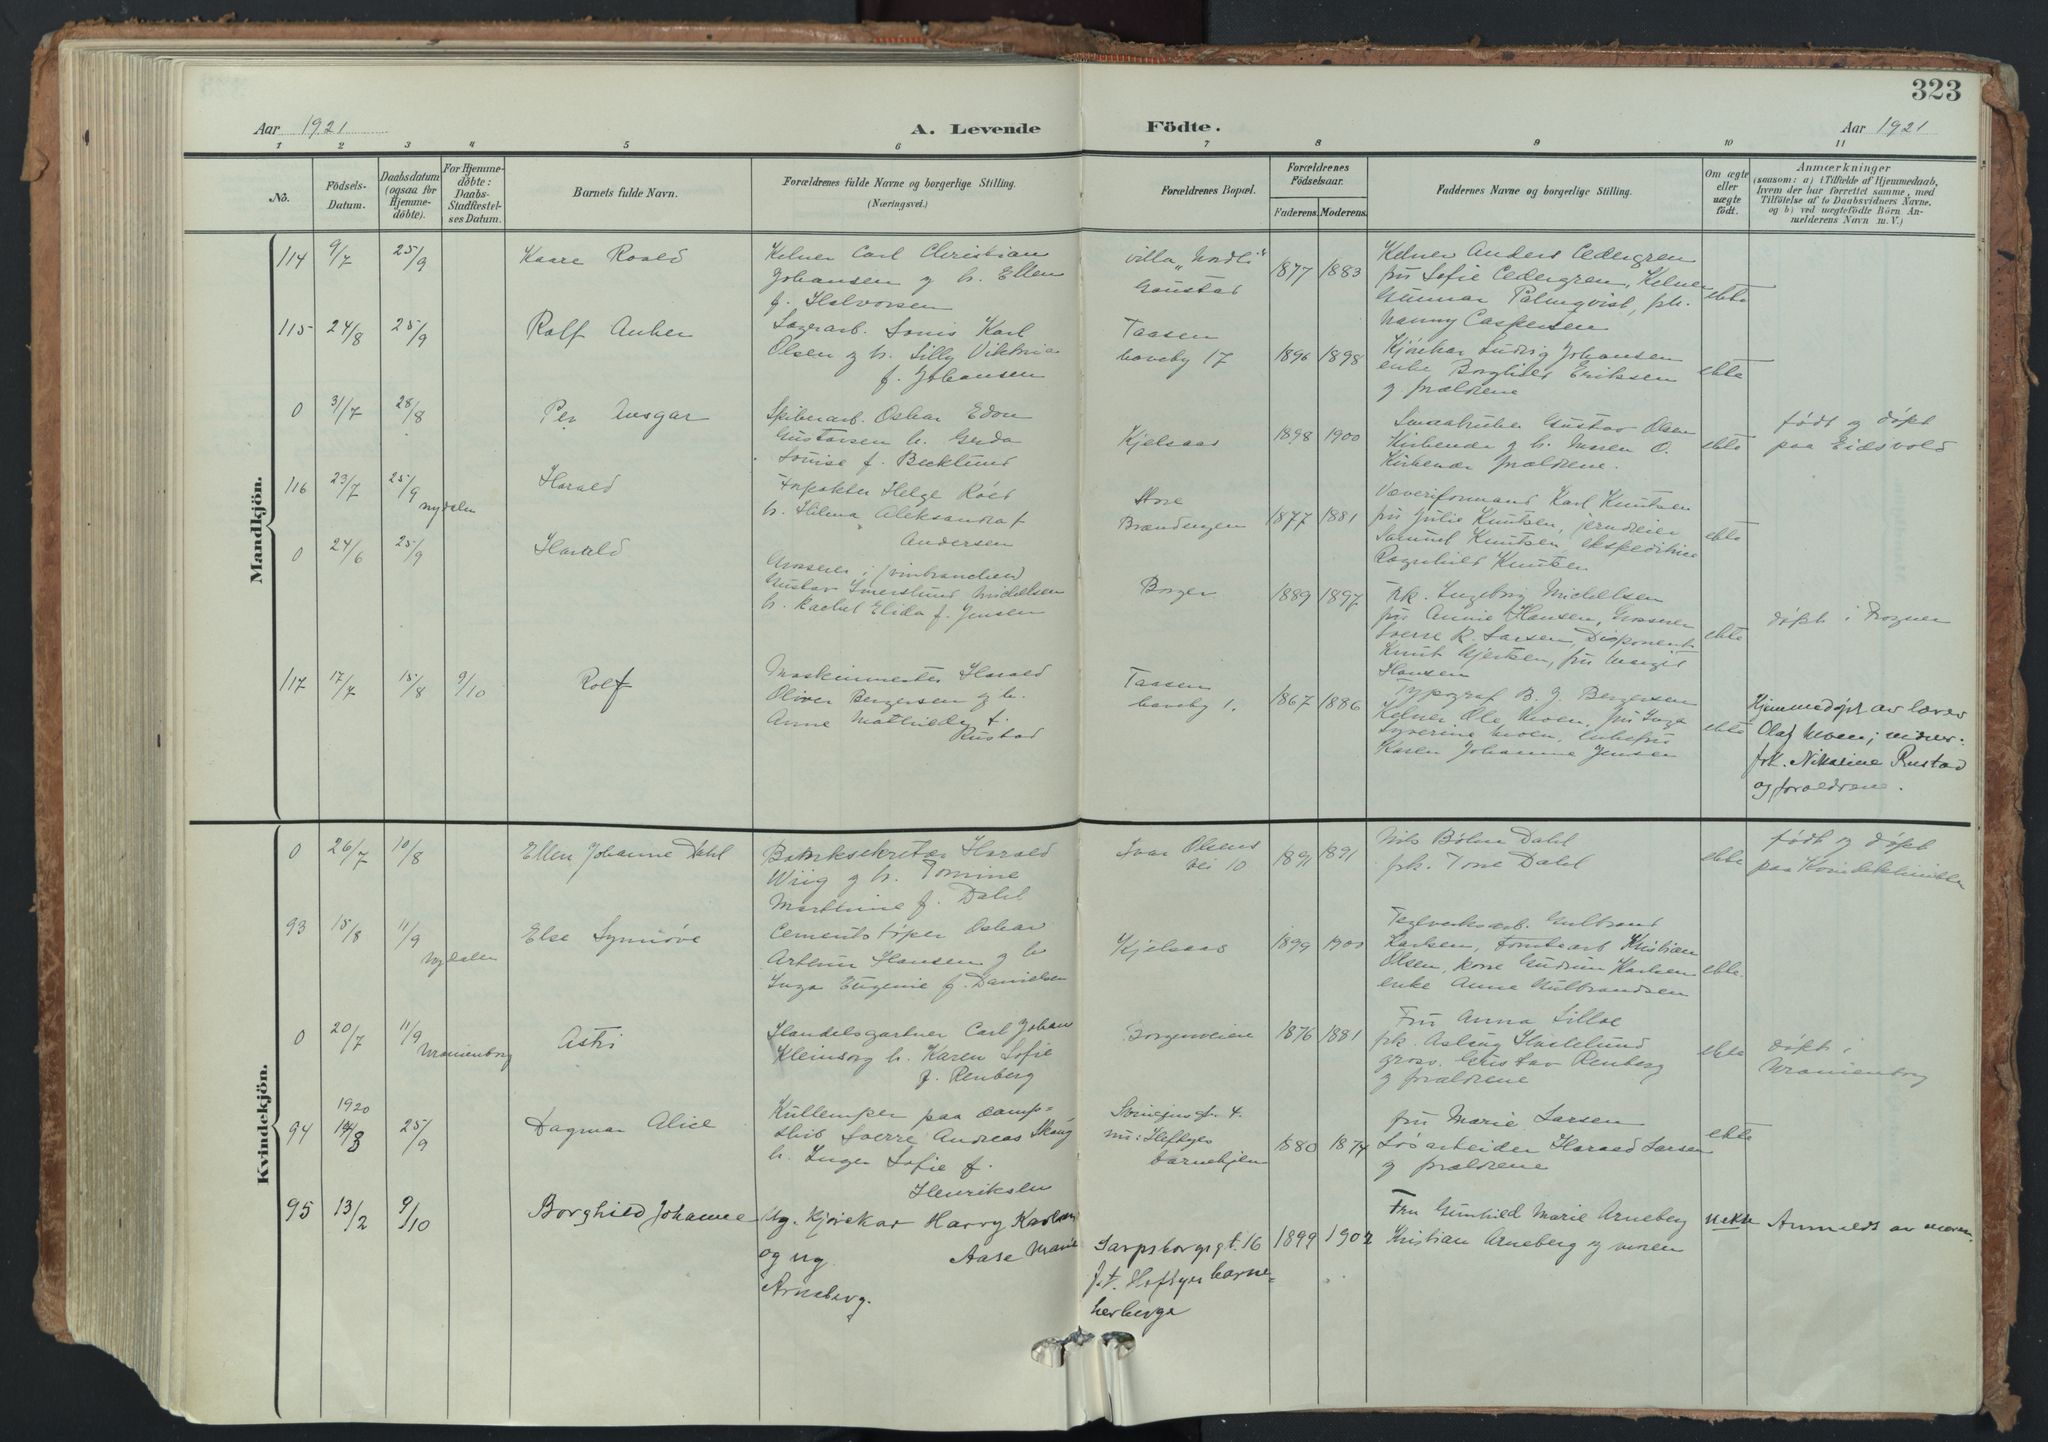 323
Aar 1921
A. Levende
Födte.
Aar 1921
1 2 3 4 5 6 7 8 9 10 11
No.
Födsels-
Datum.
Daabsdatum
(ogsaa for
Hjemme-
döbte).
For Hjemme-
döbte:
Daabs-
Stadfæstel-
ses Datum.
Barnets fulde Navn.
Forældrenes fulde Navne og borgerlige Stilling.
(Næringsvei.)
Forældrenes Bopæl.
Forældrenes
Födselsaar.
Faderens. Moderens.
Faddernes Navne og borgerlige Stilling.
Om ægte
eller
uægte
födt.
Anmærkninger
(saasom: a) i Tilfælde af Hjemmedaab,
hvem der har forrettet samme, med
Tilföielse af to Daabsvidners Navne.
og b) ved uægtefödte Börn An-
melderens Navn m. V.)
Mandkjön.
114 9/7 25/9
Kaare Roald
Kelner Carl Christian
Johansen g h. Ellen
f. Halvorsen
villa "Nordli"
Gaustad
1877 1883
Kelner Anders Cedergren
fru Sofie Cedergren, Kelner
Gunnar Palmqvist, frk.
Nanny Caspersen
ekte
115 24/8 25/9
Rolf Anker
Lagerarb. Louis Karl
Olsen g h. Lilly Viktoria
f. Johansen
Taasen
haveby 17
1896 1898
Kjørekar Ludvig Johansen
enke Borghild Eriksen
g forældrene
ekte
0 31/7 28/8
Per Ansgar
Spikerarb. Oskar Edon
Gustavsen h. Gerda
Louise f. Becklund
Kjelsaas
1898 1900
Gustav Olsen
Kirkenær g h. Maren O.
Kirkenær forældrene.
ekte
født og døpt
paa Eidsvold
116 23/7 25/9
Nydalen
Harald
Inspektør Helge Røed
h. Hilma Aleksandra f
Andersen
Store
Brændengen
1877 1881
Væveriformand Karl Knutsen
fru Julie Knutsen,
Samuel Knutsen, ekspeditrice
Ragnhild Knutsen
ekte
0 24/6 25/9
Harald
Grosserer i (vinbranchen)
Gustav Smerslund Mickelsen
h. Rachel Elida f. Jensen
Borgen
1889 1897
Frk. Ingeborg Mickelsen
fru Annie Hansen, Grosserer
Sverre R. Larsen, Disponent
Knut Gjertsen, fru Margit
Hansen
ekte
døpt i Frogner
117 17/7 15/8 9/10
Rolf
Maskinmester Harald
Oliver Bergersen g h.
Anne Mathilde f.
Rustad
Taasen
haveby 1.
1867 1886
Typograf B. J. Bergersen
Kelner Ole Moen, fru Inga
Syverine Moen, enkefru
Karen Johanne Jensen
ekte
Hjemmedøpt av lærer
Olaf Moen; vidner:
frk. Nikoline Rustad
og foreldrene.
Kvindekjön.
0 26/7 10/8
Ellen Johanne Dahl
Banksekretær Harald
Wiig g h. Tomine
Marthine f. Dahl
Ivar Olsens
vei 10
1891 1891
Nils Bølin Dahl
frk. Tone Dahl
ekte
født og døpt
paa Kvindeklinikken
93 15/8 11/9
Nydalen
Else Synnøve
Cementstøper Oskar
Arthur Hansen g h
Inga Eugenie f. Danielsen
Kjelsaas
1899 1901
Teglverksarb. Gulbrand
Karlsen, Tomtearb Kristian
Olsen, kone Gudrun Karlsen
enke Anne Gulbrandsen
ekte.
0 20/7 11/9
Uranienborg
Astri
Handelsgartner Carl Johan
Kleinsorg h. Karen Sofie
f. Renberg
Borgenveien
1876 1881
Fru Anna Lilloe
frk. Aslaug Haslelund
gross. Gustav Renberg
g forældrene
ekte
døpt i
Uranienborg
94 1920 14/8 25/9
Dagmar Alice
Kullemper paa damp-
skib Sverre Andreas Skaug
h. Inger Sofie f.
Henriksen
4.
nu: Heftyes
barnehjem
1880 1874
fru Marie Larsen
Løsarbeider Harald Larsen
g forældrene
ekte
95 13/2 9/10
Borghild Johanne
Ug. Kjørekar Harry Karlsen
og ug. Aase Marie
Arneberg.
Sarpsborgsgt. 16
f.t. Heftyes barne-
herberge
1899 1902
Fru Gunhild Marie Arneberg
Kristian Arneberg og moren
uekte
Anmeldt av moren.